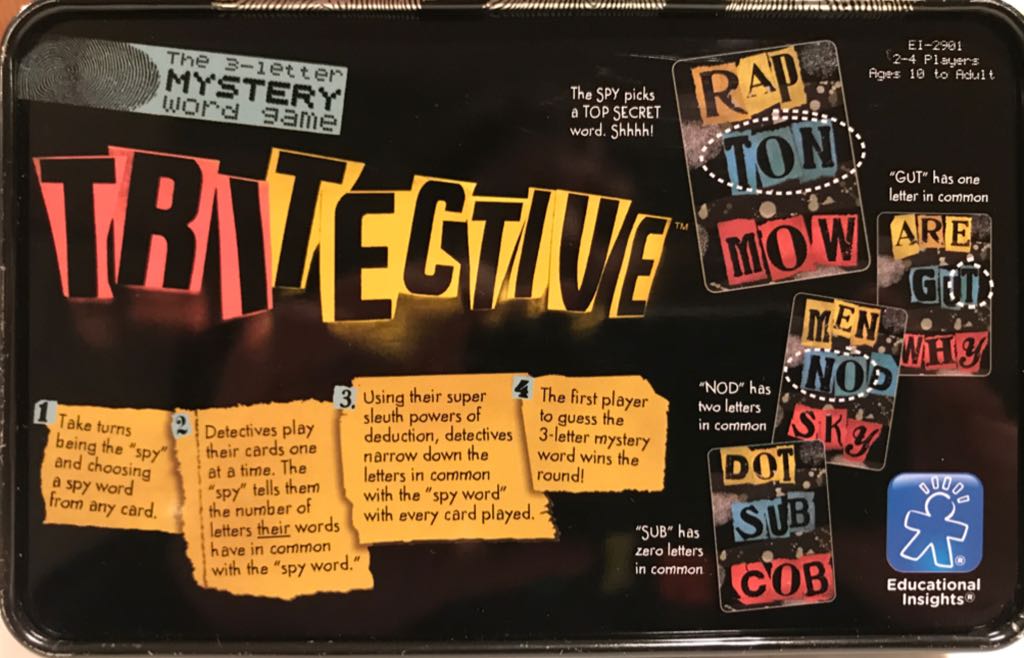 The 3-letter
MYSTERY
word game
TRITECTIVE™
The SPY picks
a TOP SECRET
word. Shhhh!
RAP
TON
MOW
EI-2901
2-4 Players
Ages 10 to Adult
"GUT" has one
letter in common
ARE
GUT
WHY
"NOD" has
two letters
in common
MEN
NOD
SKY
"SUB" has
zero letters
in common
DOT
SUB
COB
1
Take turns
being the "spy"
and choosing
a spy word
from any card.
2
Detectives play
their cards one
at a time. The
"spy" tells them
the number of
letters their words
have in common
with the "spy word."
3.
Using their super
sleuth powers of
deduction, detectives
narrow down the
letters in common
with the "spy word"
with every card played.
4
The first player
to guess the
3-letter mystery
word wins the
round!
Educational
Insights®